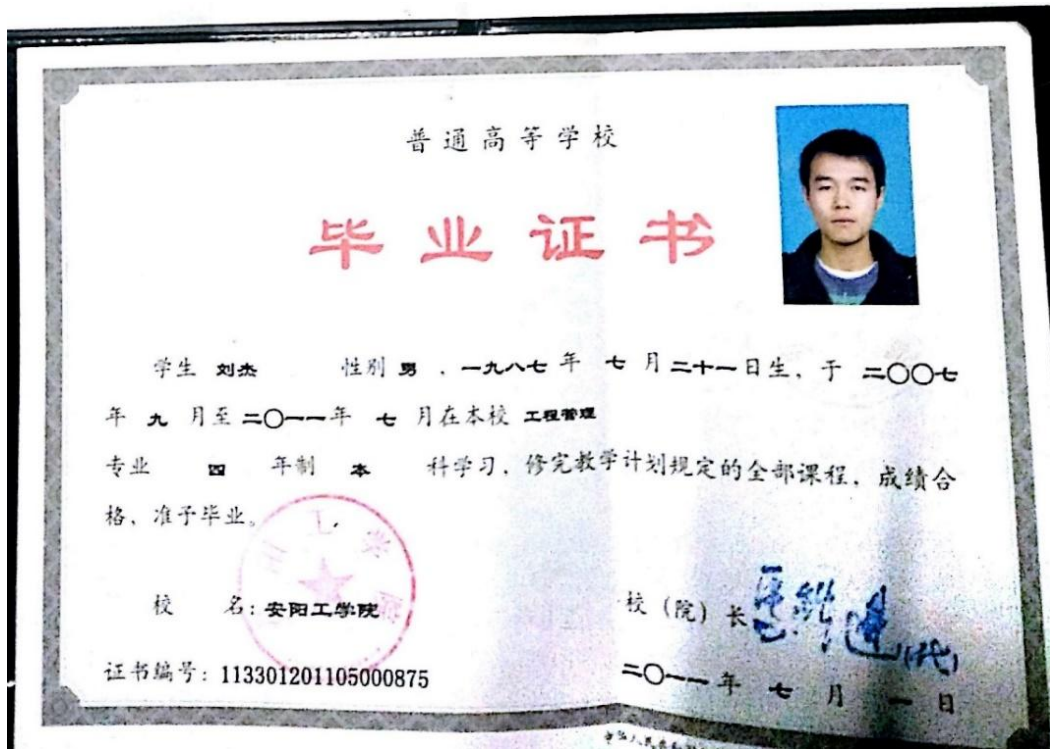 普通高等学校
毕业证书
学生 刘杰 性别 男 、一九八七 年 七 月 二十一 日生，于 二〇〇七
年 九 月至 二〇一一 年 七 月在本校 工程管理
专业 四 年制 本 科学习，修完教学计划规定的全部课程，成绩合
格，准予毕业。
校 名：安阳工学院
校（院）长
证书编号：113301201105000875
二〇一一 年 七 月 一 日